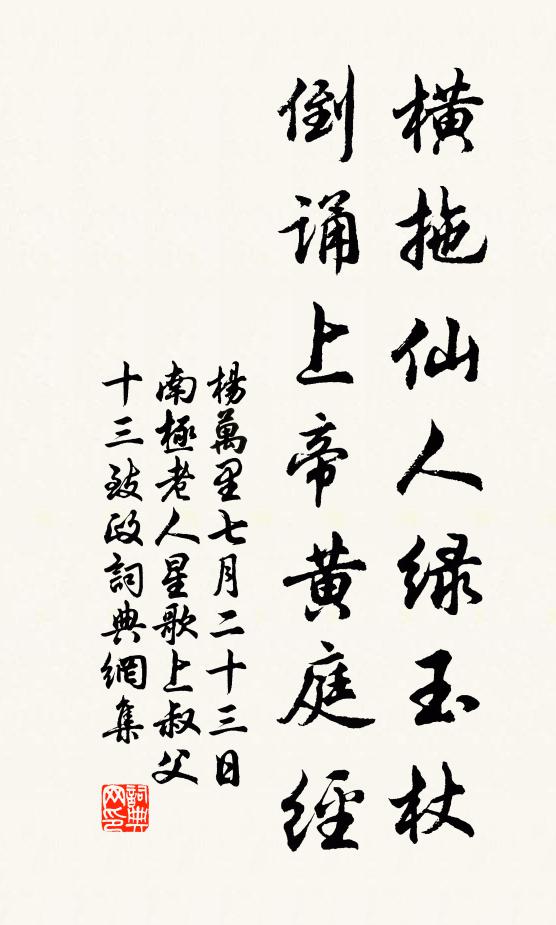 橫拖仙人綠玉杖
倒誦上帝黃庭經
楊萬里七月二十三日
南極老人星歌上叔父
十三致政詞典網集
詞典
网印